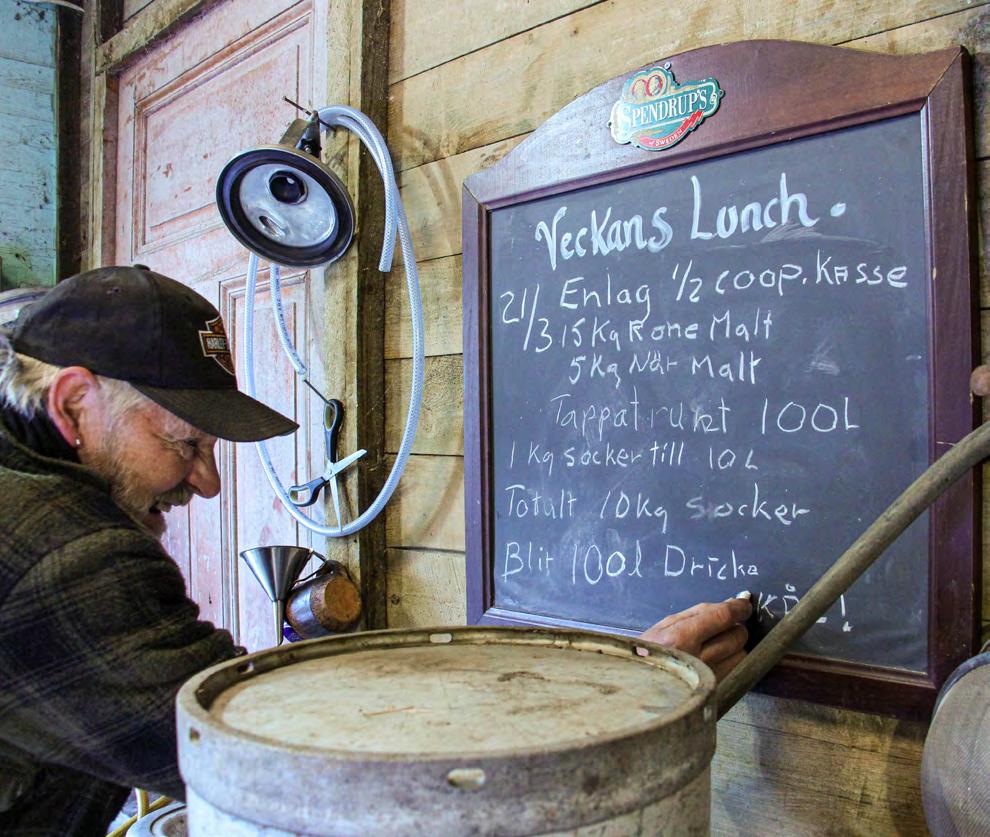 SPENDRUP'S
OF SWEDEN
Veckans Lunch.
21/3 Enlag 1/2 coop. Kasse
15 Kg Kone Malt
5 Kg När Malt
Tappat runt 100L
1 Kg socker till 10 L
Totalt 10 Kg Socker
Blir 100l Dricka
HARLEY